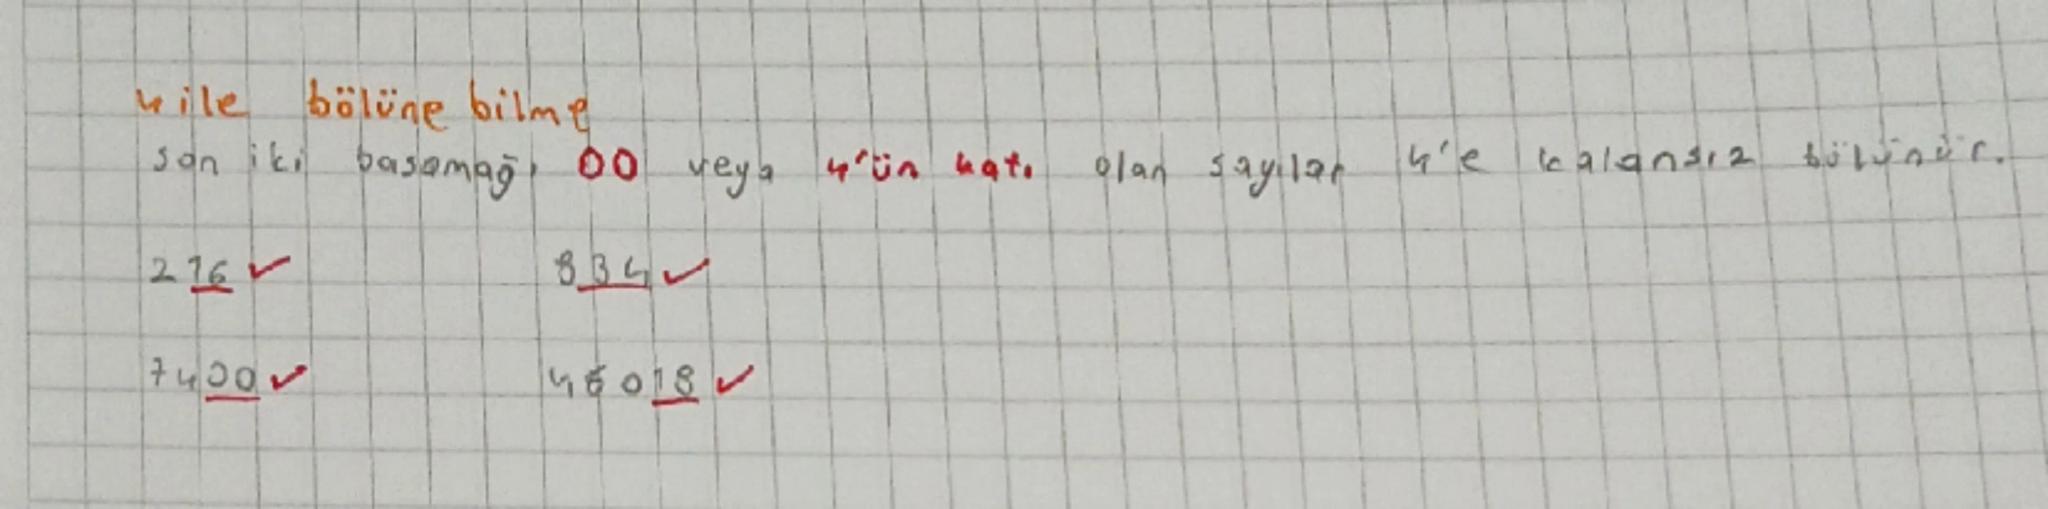 4 ile bölüne bilme
son iki basamağı 00 veya 4'ün katı olan sayılar 4'e kalansız bölünür.
216 ✓ 834 ✓
7400 ✓ 46018 ✓